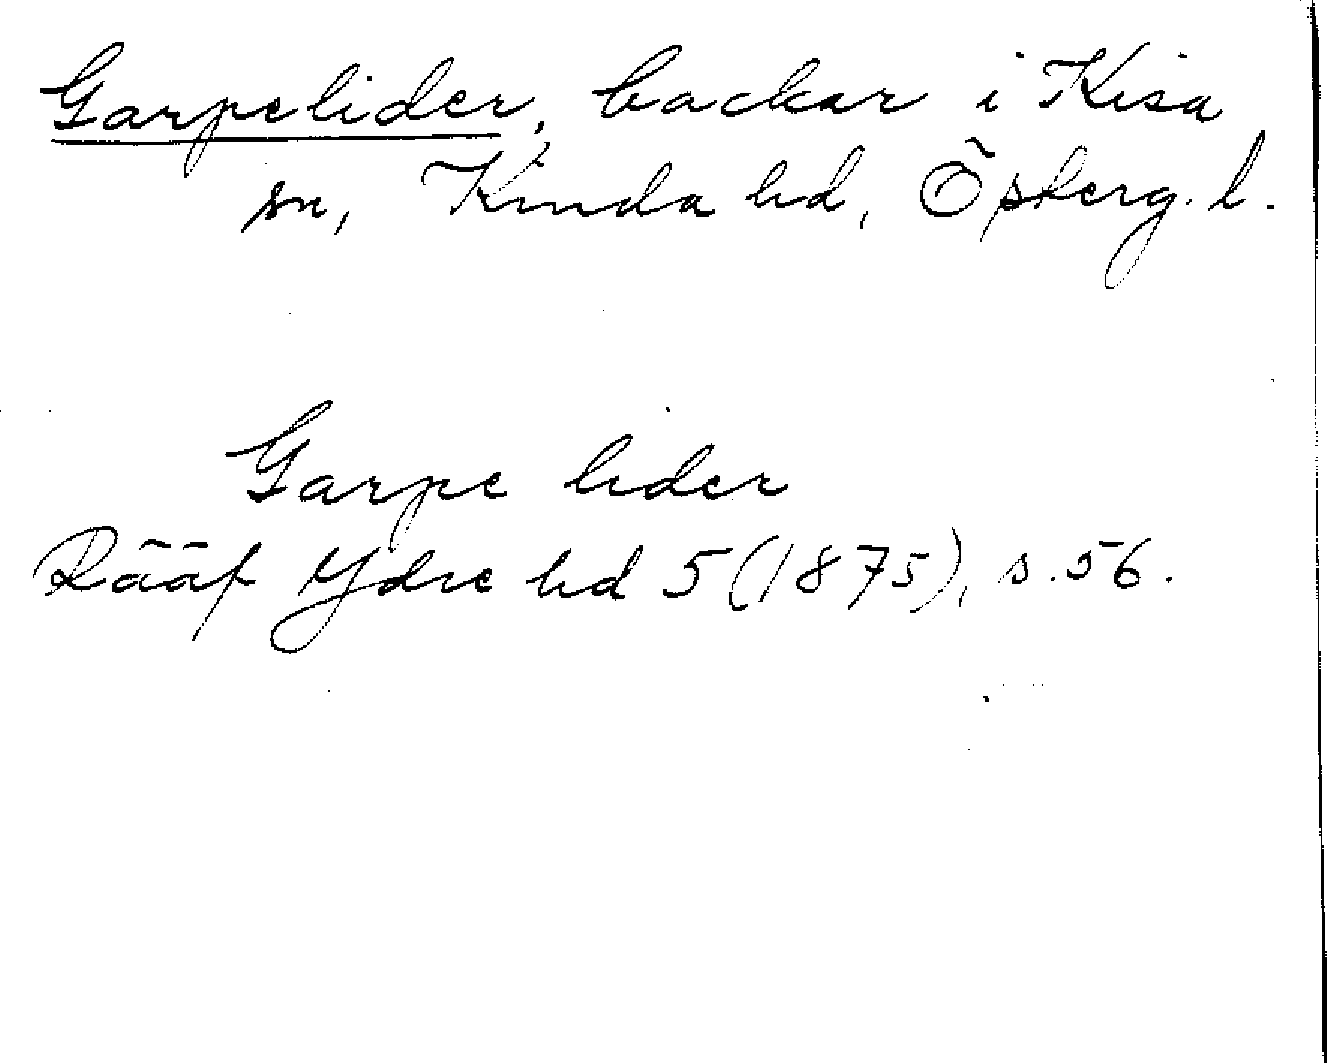 Garpelider, backar i Kisa
sn, Kinda hd, Östberg. l.
Garpe lider
Rääf Ydre hd 5 (1875), s. 56.